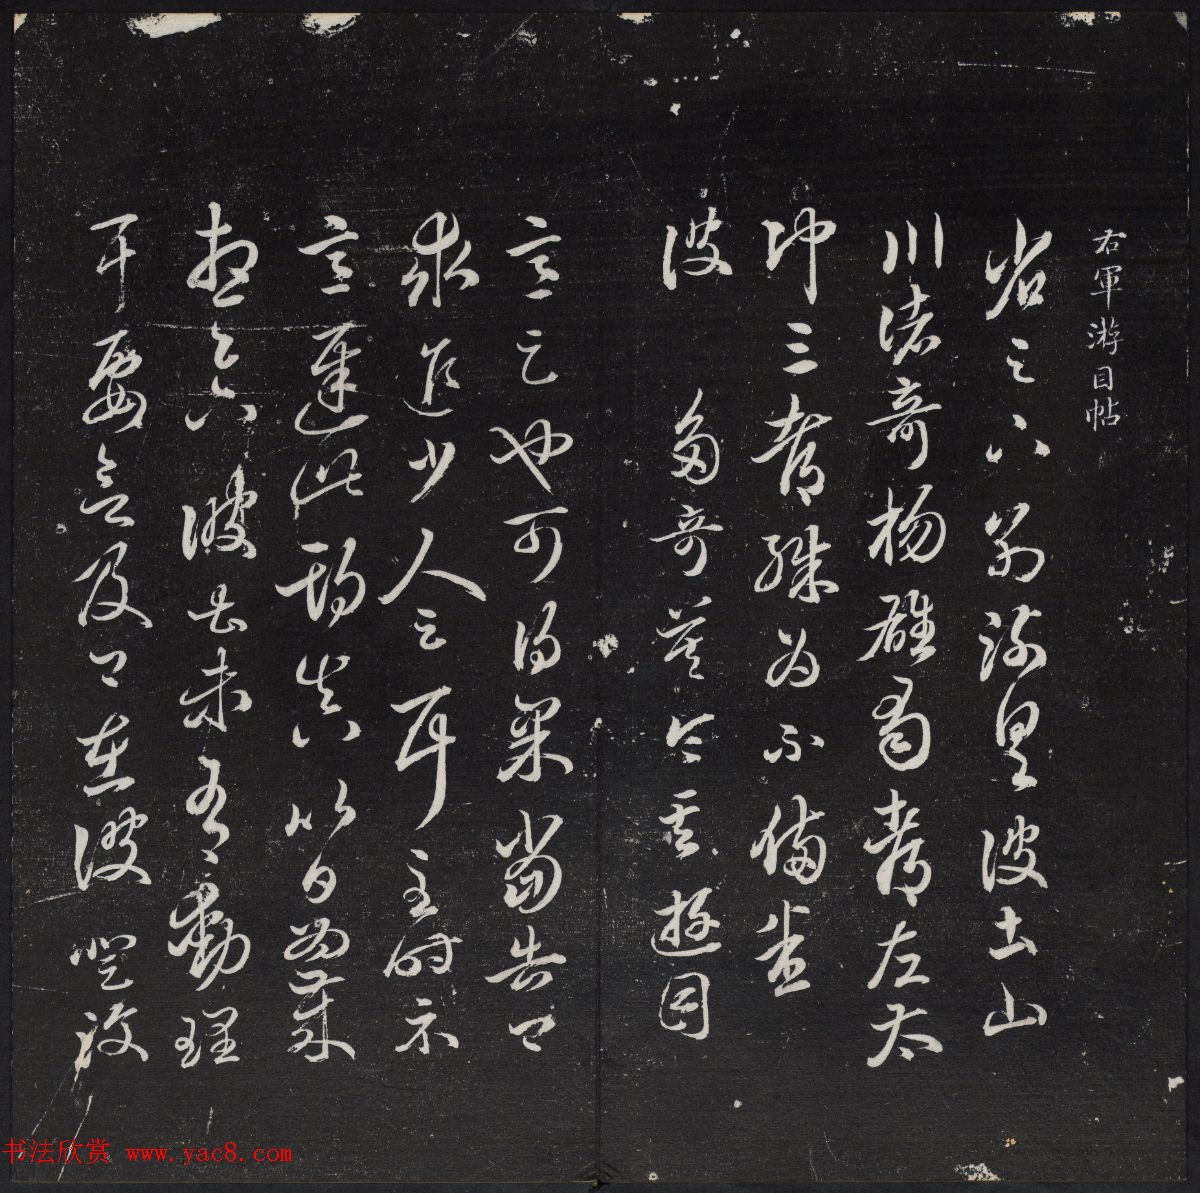 右軍游目帖
省足下別疏具彼土山
川諸奇楊雄蜀都左太
沖三都殊為不備悉
彼 多奇益令其遊目
意足也可得果當告卿
求迎少人足耳至時示
意遲此期真以日為歲
想足下 彼土未有動理
耳要欲及卿在彼登汶
书法欣赏 www.yac8.com